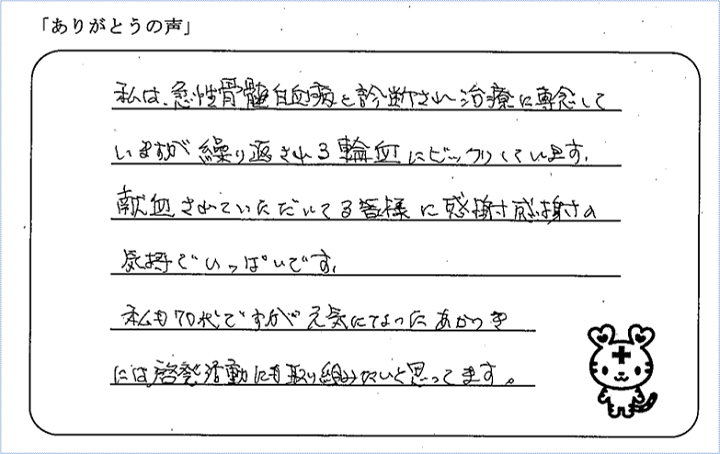 「ありがとうの声」
私は、急性骨髄白血病と診断され治療に専念して
いますが繰り返される輸血にビックリしています。
献血されていただいてる皆様に感謝感謝の
気持でいっぱいです。
私も70代ですが元気になったあかつき
には、啓発活動にも取り組みたいと思ってます。